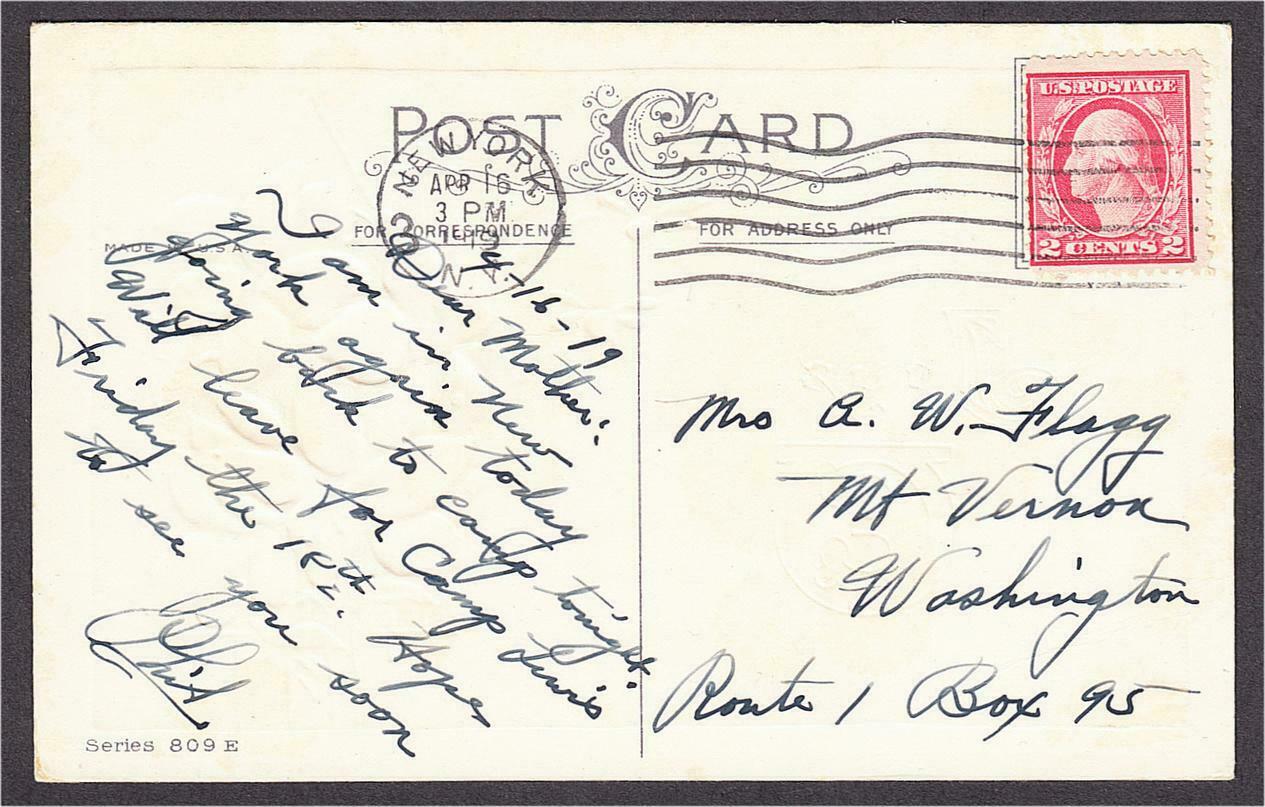 POST CARD
NEW YORK
APR 16
3 PM
1919
N.Y.
U.S. POSTAGE
2 CENTS 2
MADE IN U.S.A.
FOR CORRESPONDENCE
FOR ADDRESS ONLY
4-16-19
Dear Mother:
I am in New
York again today
going back to camp tonight.
Will leave for Camp Lewis
Friday the 18th. Hope
to see you soon
Mrs A. W. Flagg
Mt Vernon
Washington
Route 1 Box 95
Series 809 E